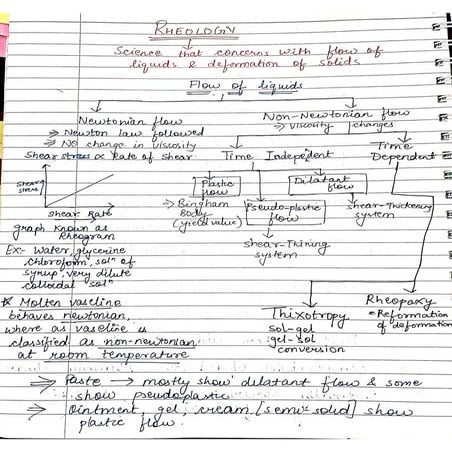 RHEOLOGY
Science that concerns with flow of
liquids & deformation of solids
Flow of liquids
Newtonian flow
⇒ Newton law followed
⇒ No change in viscosity
Shear stress ∝ Rate of shear
Non-Newtonian flow
⇒ Viscosity changes
Time Indepident
Time
Dependent
Shear
stress
Shear Rate
graph known as
Rheogram
Ex- Water, glycerine
, chloroform, solⁿ of
syrup, very dilute
colloidal solⁿ
Plastic
flow
⇒ Bingham
Body
(yield value)
Pseudo-plastic
flow
shear-Thining
system
Dilatant
flow
shear-Thickening
system
* Molten vaseline
behaves newtonian,
where as vaseline is
classified as non-newtonian
at room temperature
Thixotropy
sol-gel
gel-sol
conversion
Rheopaxy
= Reformation
of deformation
⇒ Paste → mostly show dilatant flow & some
show pseudoplastic
⇒ Ointment, gel, cream [semi-solid] show
plastic flow.